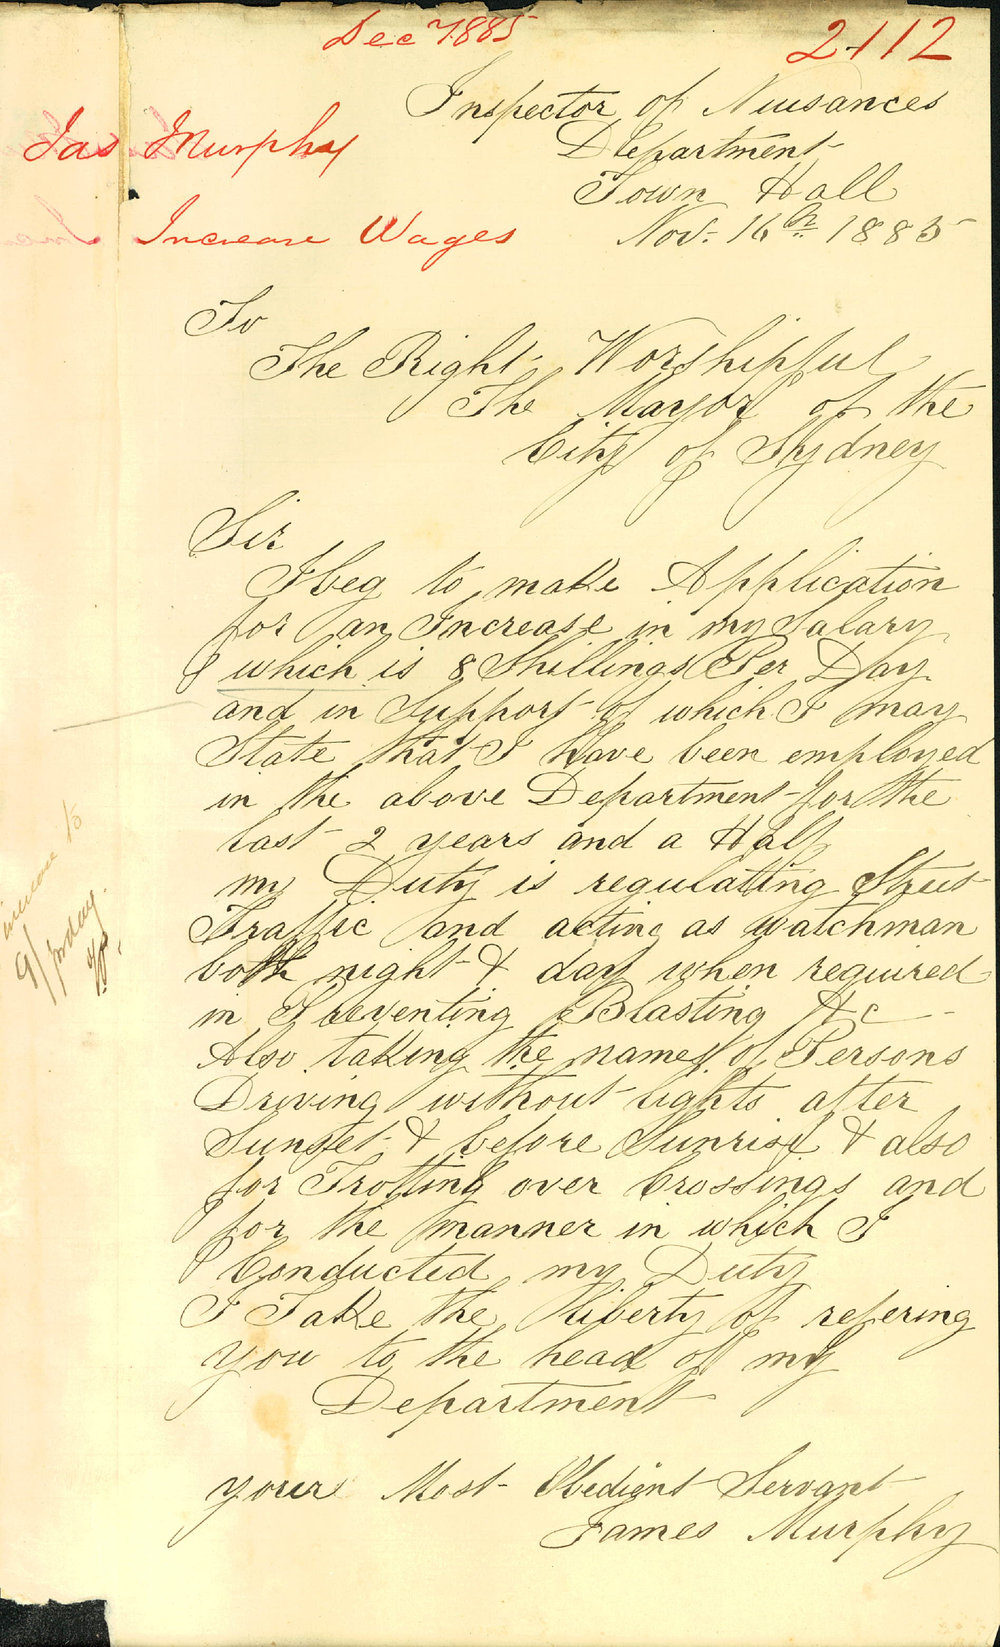 Dec 7. 1885
2112
Jas Murphy
Increase Wages
Inspector of Nuisances
Department
Town Hall
Nov. 16th 1885
To
The Right Worshipful
The Mayor of the
City of Sydney
Sir
I beg to make Application
for an Increase in my Salary
which is 8 Shillings Per Day
and in Support of which I may
State that I Have been employed
in the above Department for the
last 2 years and a Half
my Duty is regulating Street
Traffic and acting as watchman
both night & day when required
in Preventing Blasting &c
Also taking the names of Persons
Driving without lights after
Sunset & before Sunrise & also
for Trotting over Crossings and
for the manner in which I
Conducted my Duty
I Take the Liberty of refering
you to the head of my
Department
your Most Obedient Servant
James Murphy
increase to
9/ per day.